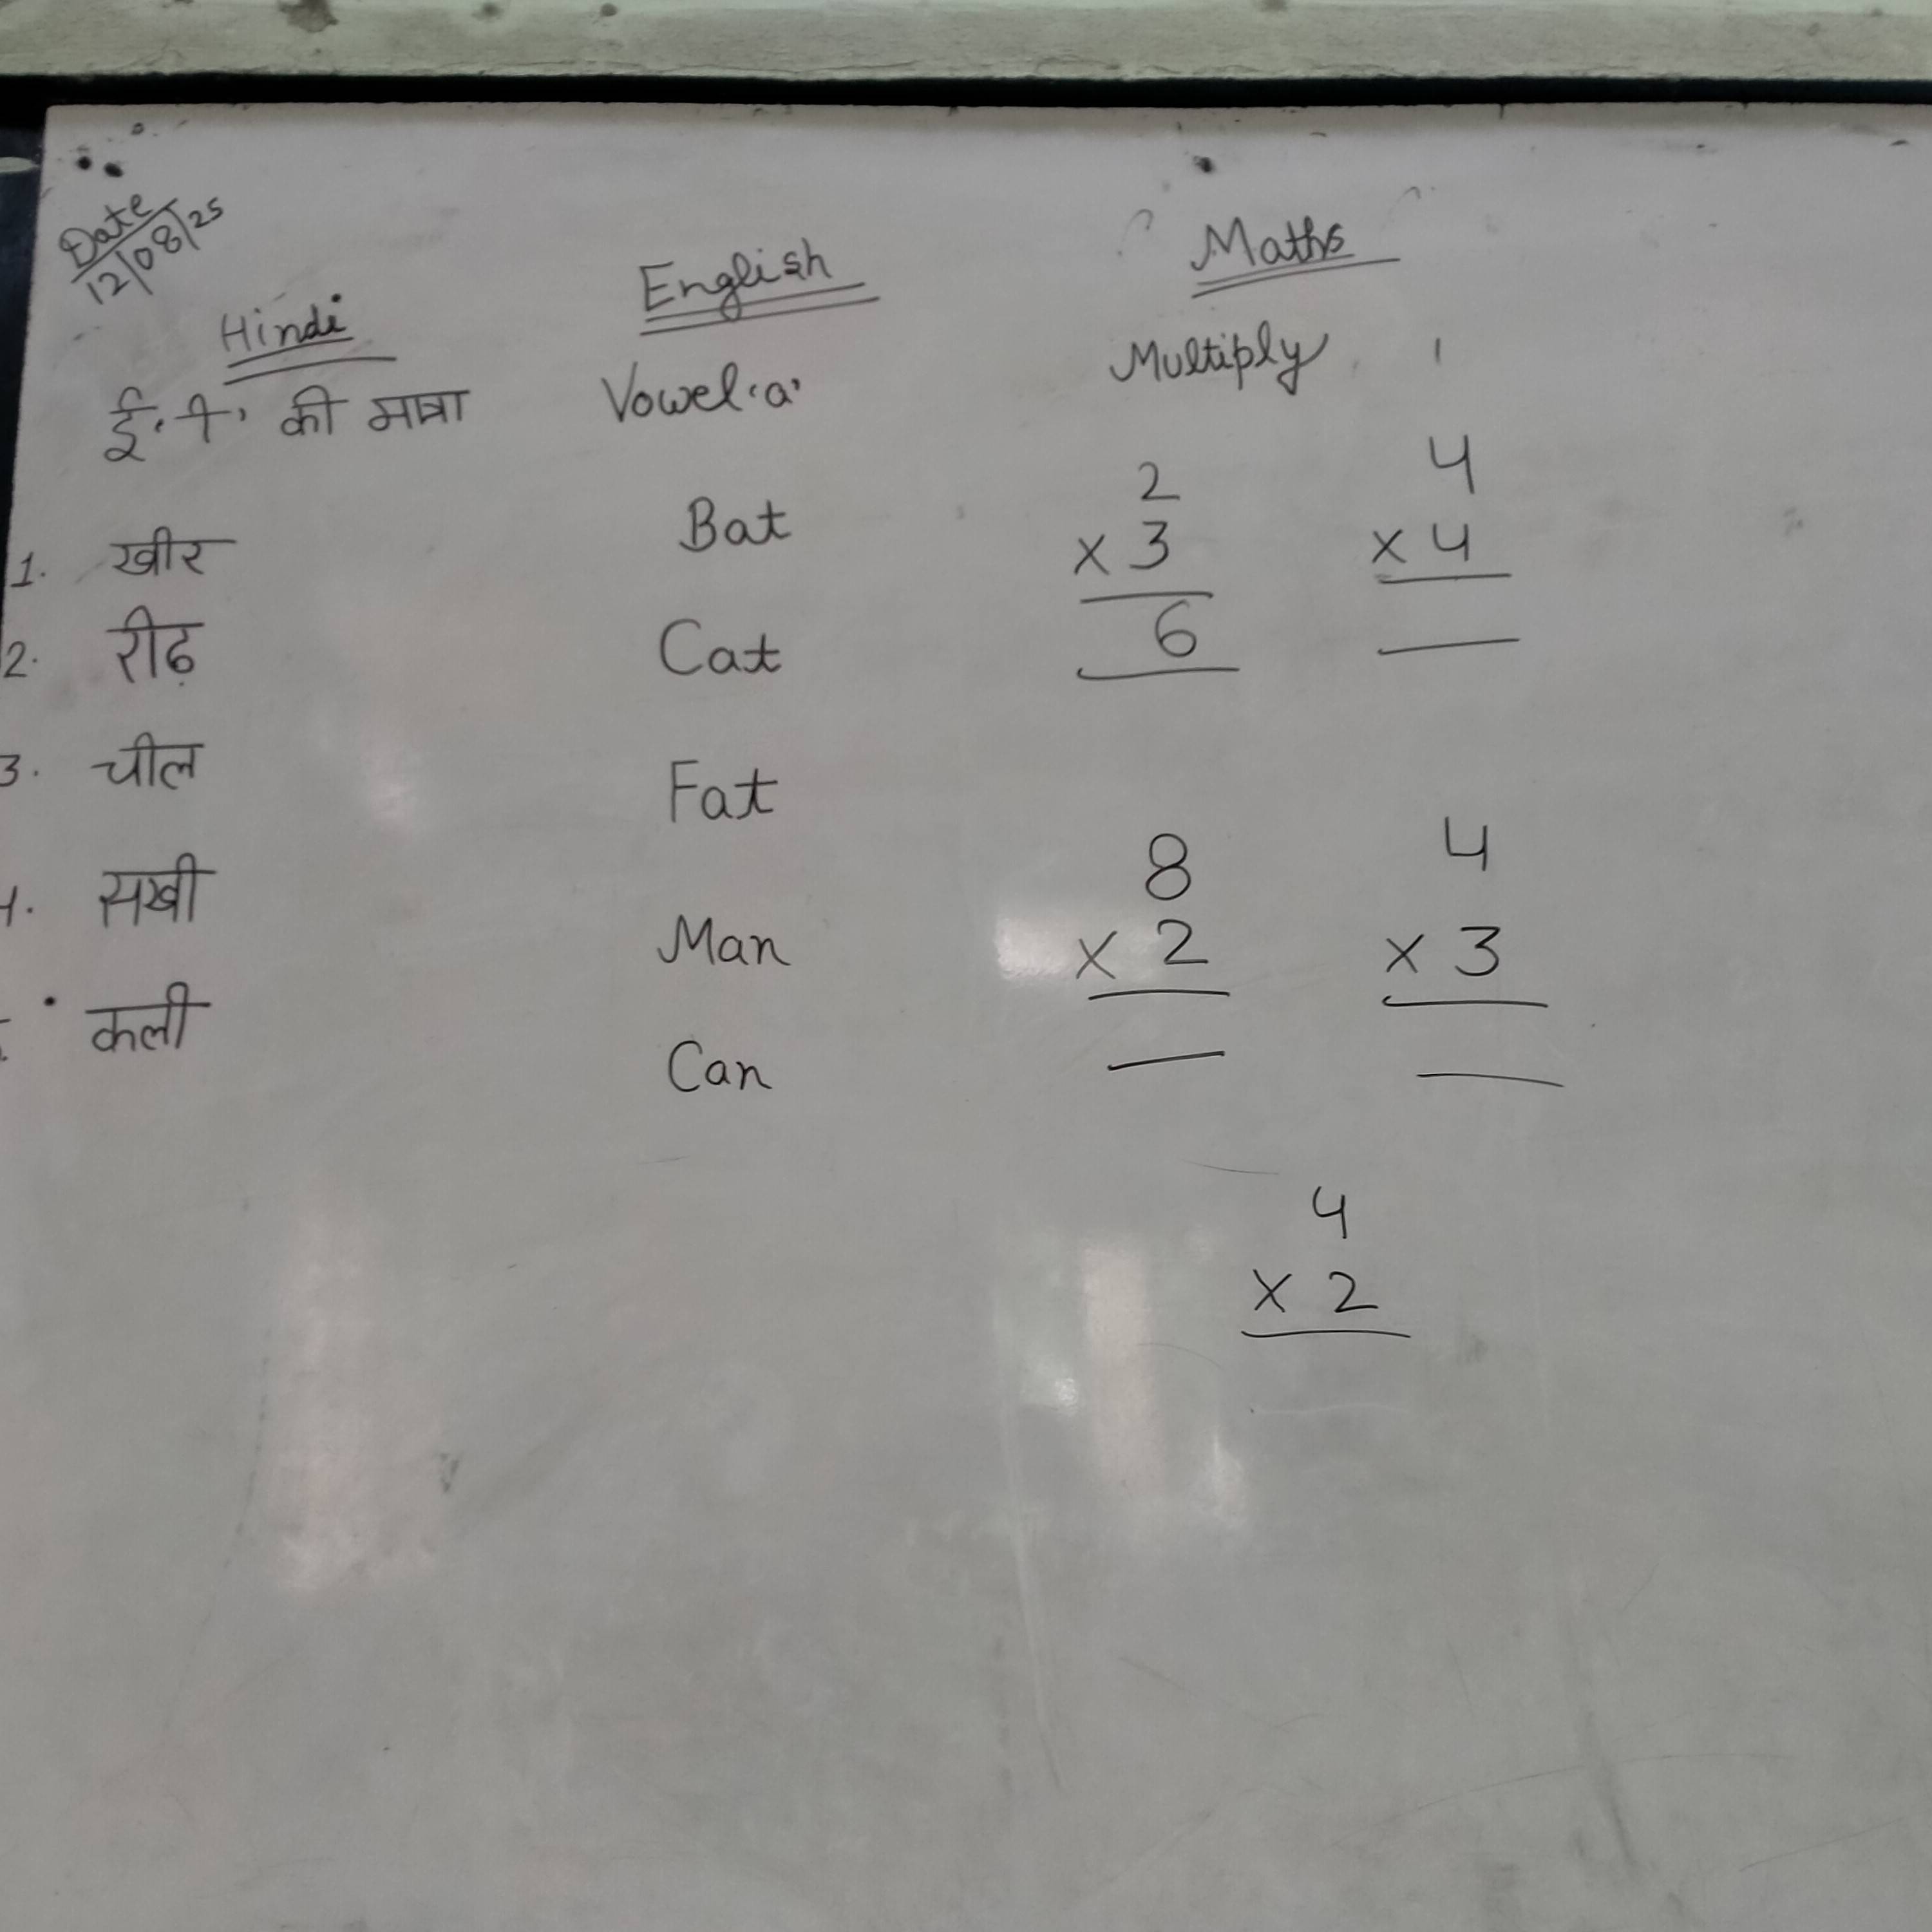 Date
12/08/25
Hindi
ई 'ी' की मात्रा
1. खीर
2. रीढ़
3. चील
4. सखी
5. कली
English
Vowel 'a'
Bat
Cat
Fat
Man
Can
Maths
Multiply
2
× 3
6
4
× 4
8
× 2
4
× 3
4
× 2